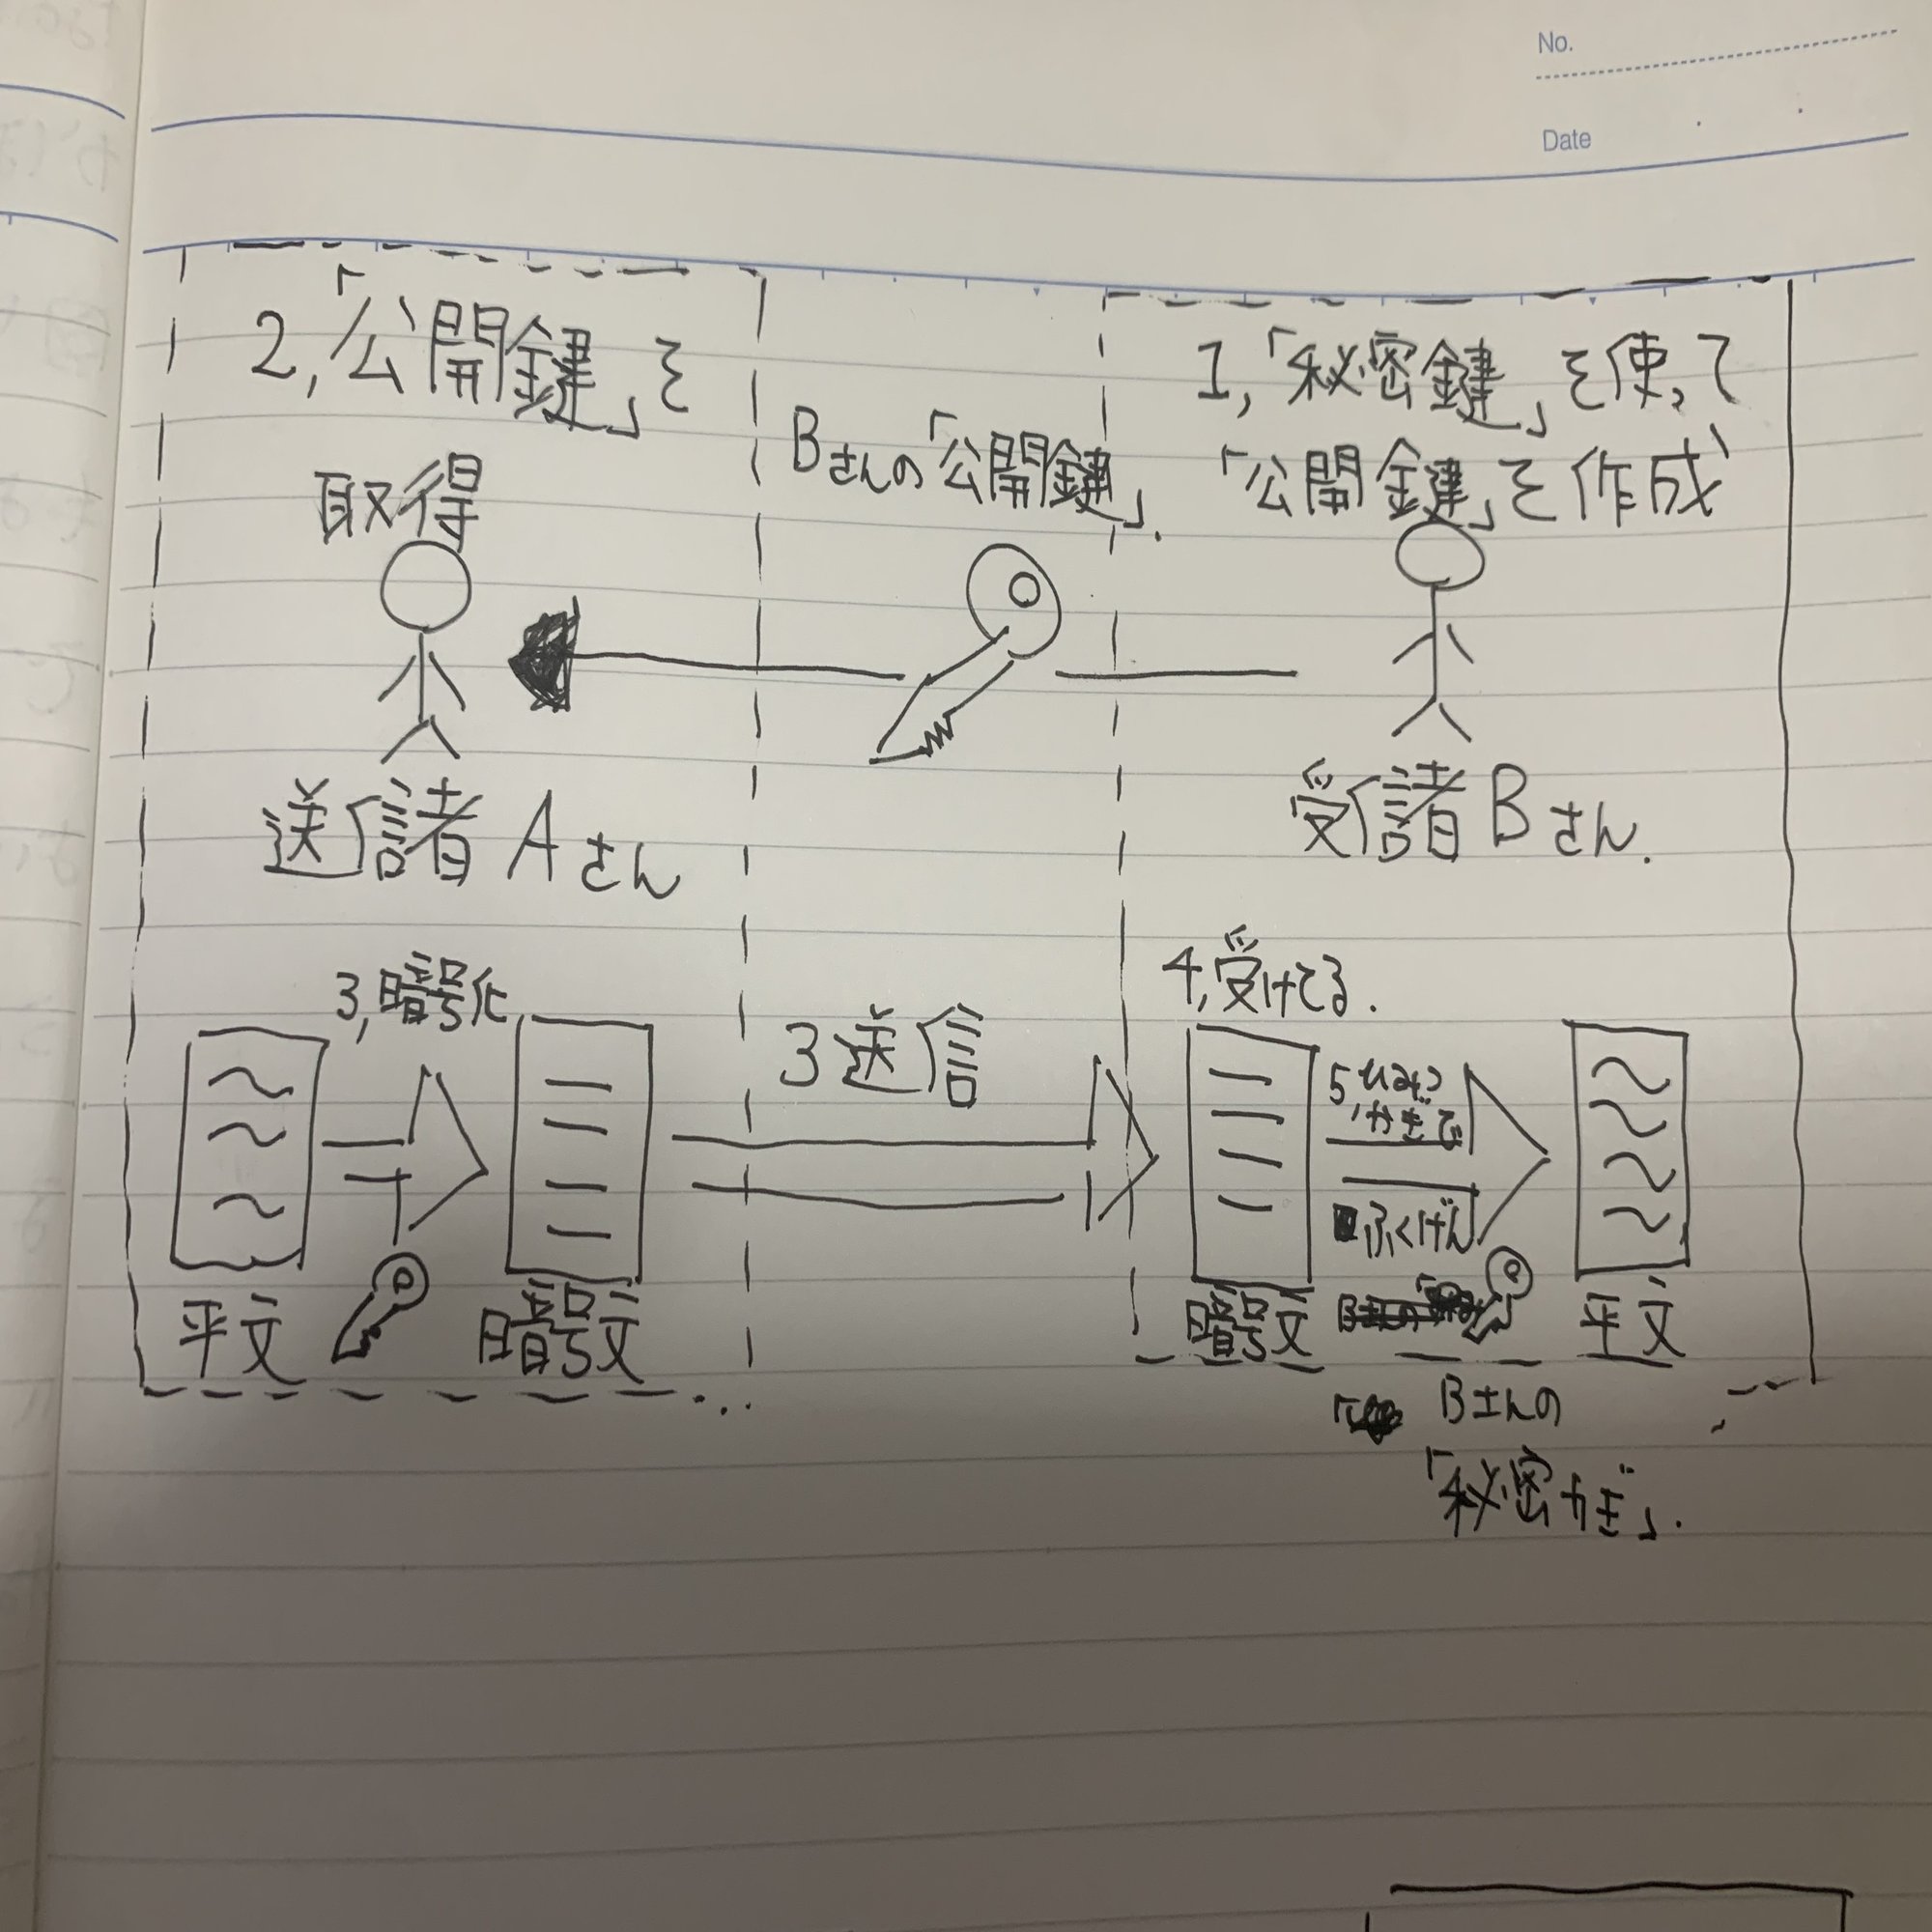 No.
Date
2,「公開鍵」を
取得
Bさんの「公開鍵」.
1,「秘密鍵」を使って
「公開鍵」を作成
送信諸 Aさん
受信諸 Bさん.
3,暗号化
3送信
4,受けてる.
5,ひみつ
かぎで
ふくげん
平文
暗号文
暗号文
平文
Bさんの
「秘密かぎ」.